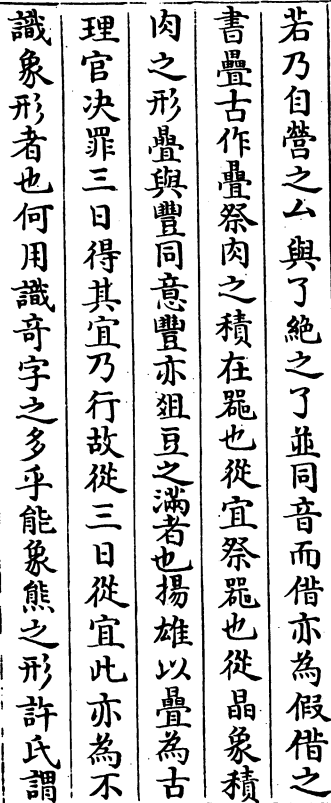 若乃自營之厶與了絶之了並同音而借亦為假借之
書疊古作疊祭肉之積在器也從宜祭器也從晶象積
肉之形疊與豐同意豐亦爼豆之滿者也揚雄以疊為古
理官決罪三日得其宜乃行故從三日從宜此亦為不
識象形者也何用識竒字之多乎能象熊之形許氏謂